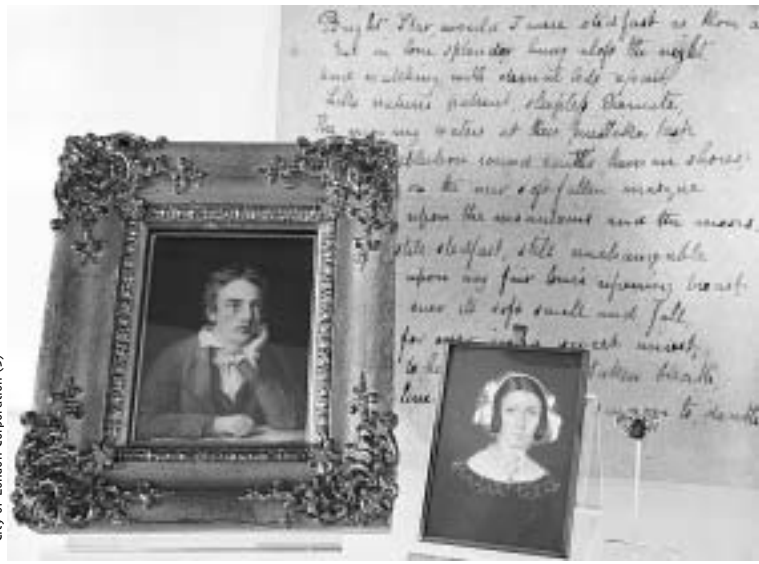 Bright Star would I were stedfast as thou
Not in lone splendor hung aloft the night
and watching with eternal lids apart
Like natures patient, sleepless Eremite,
The morning waters at their priestlike task
ablution round earths human shores;
on the new soft-fallen masque
upon the mountains and the moors,
still stedfast, still unchangeable
upon my fair love's ripening breast
ever its soft swell and fall
for ever in a sweet unrest,
to taken breath
live swoon to death
City of London Corporation